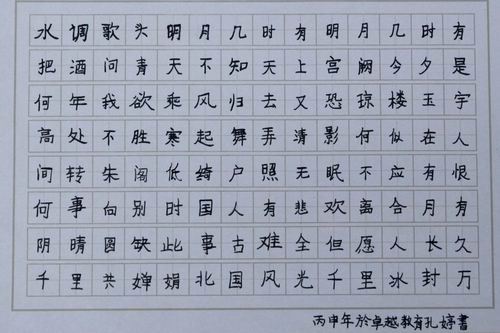 水调歌头明月几时有明月几时有
把酒问青天不知天上宫阙今夕是
何年我欲乘风归去又恐琼楼玉宇
高处不胜寒起舞弄清影何似在人
间转朱阁低绮户照无眠不应有恨
何事向别时国人有悲欢离合月有
阴晴圆缺此事古难全但愿人长久
千里共婵娟北国风光千里冰封万
丙申年於卓越教育孔婷書